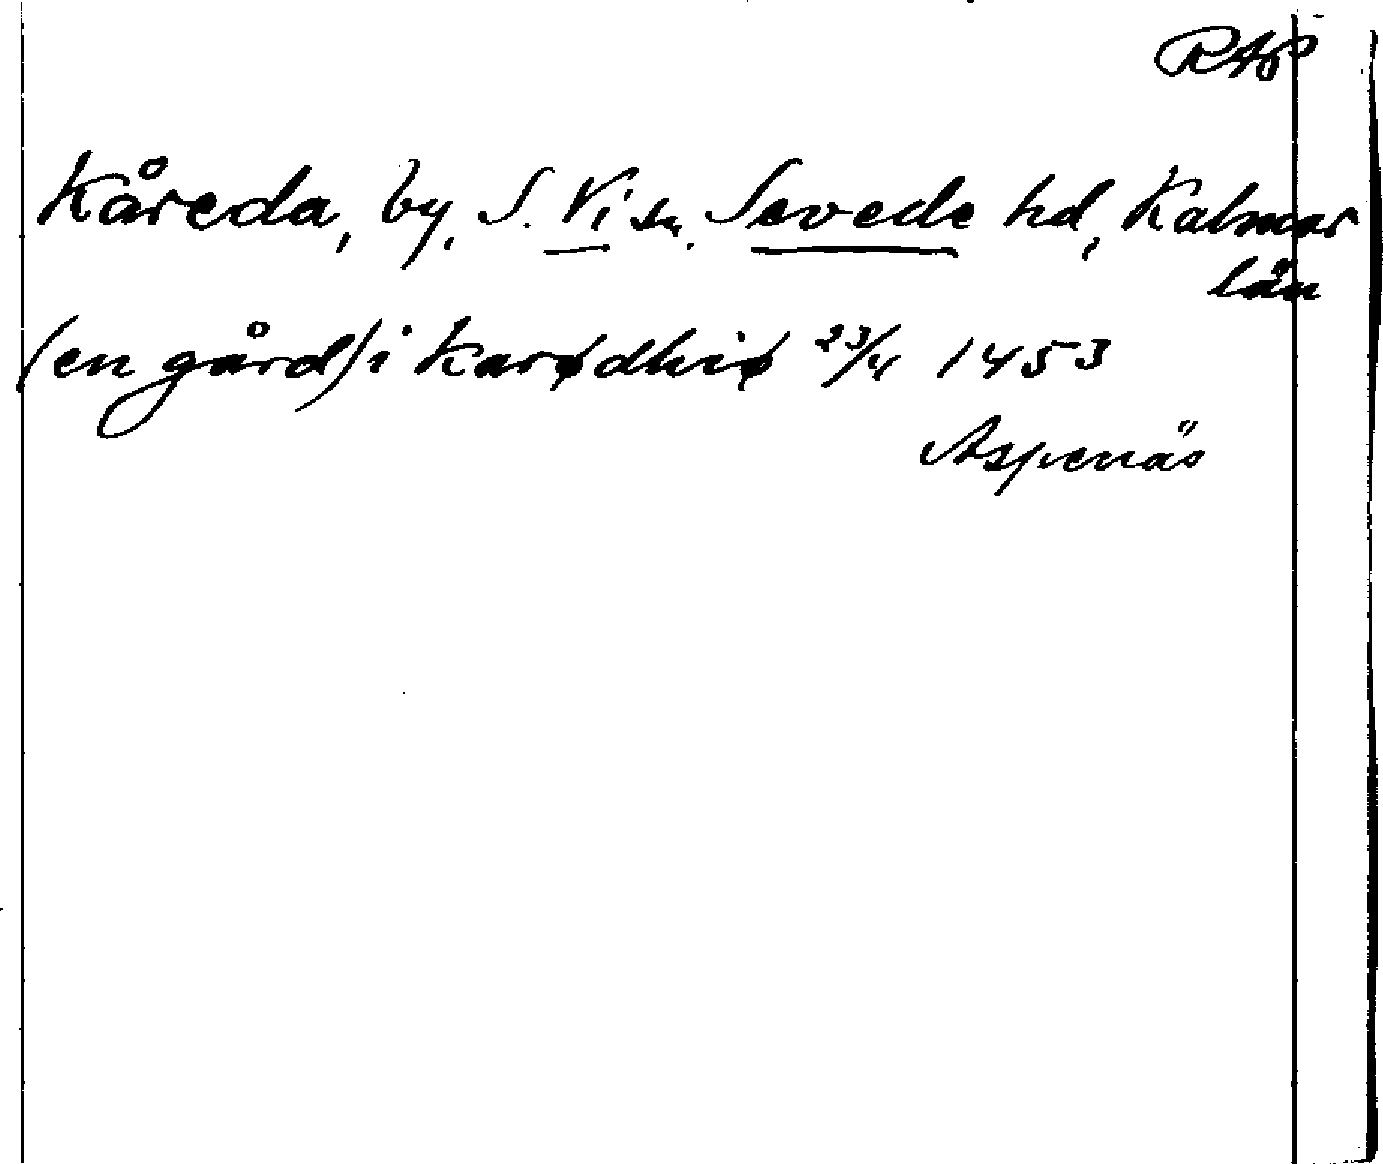 RAP
Kåreda, by, S. Vi sn. Sevede hd, Kalmar
län
(en gård) i karødhiø 23/4 1453
Aspenäs